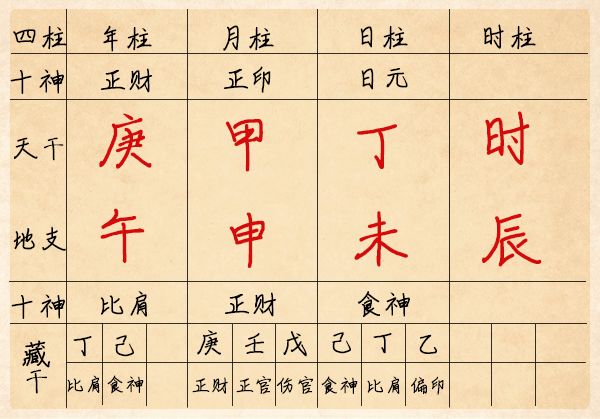 四柱 年柱 月柱 日柱 时柱
十神 正财 正印 日元
天干 庚 甲 丁 时
地支 午 申 未 辰
十神 比肩 正财 食神
藏干 丁 己 庚 壬 戊 己 丁 乙
比肩 食神 正财 正官 伤官 食神 比肩 偏印